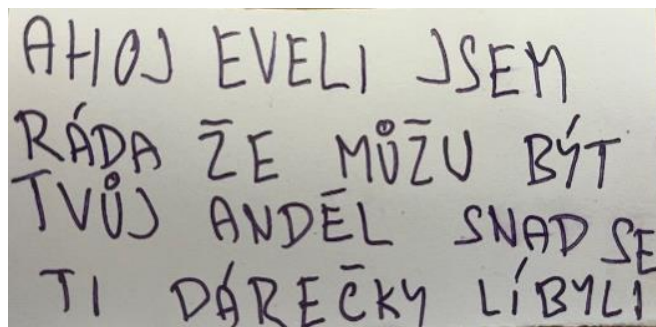 AHOJ EVELI JSEM
RÁDA ŽE MŮŽU BÝT
TVŮJ ANDĚL SNAD SE
TI DÁREČKY LÍBYLI